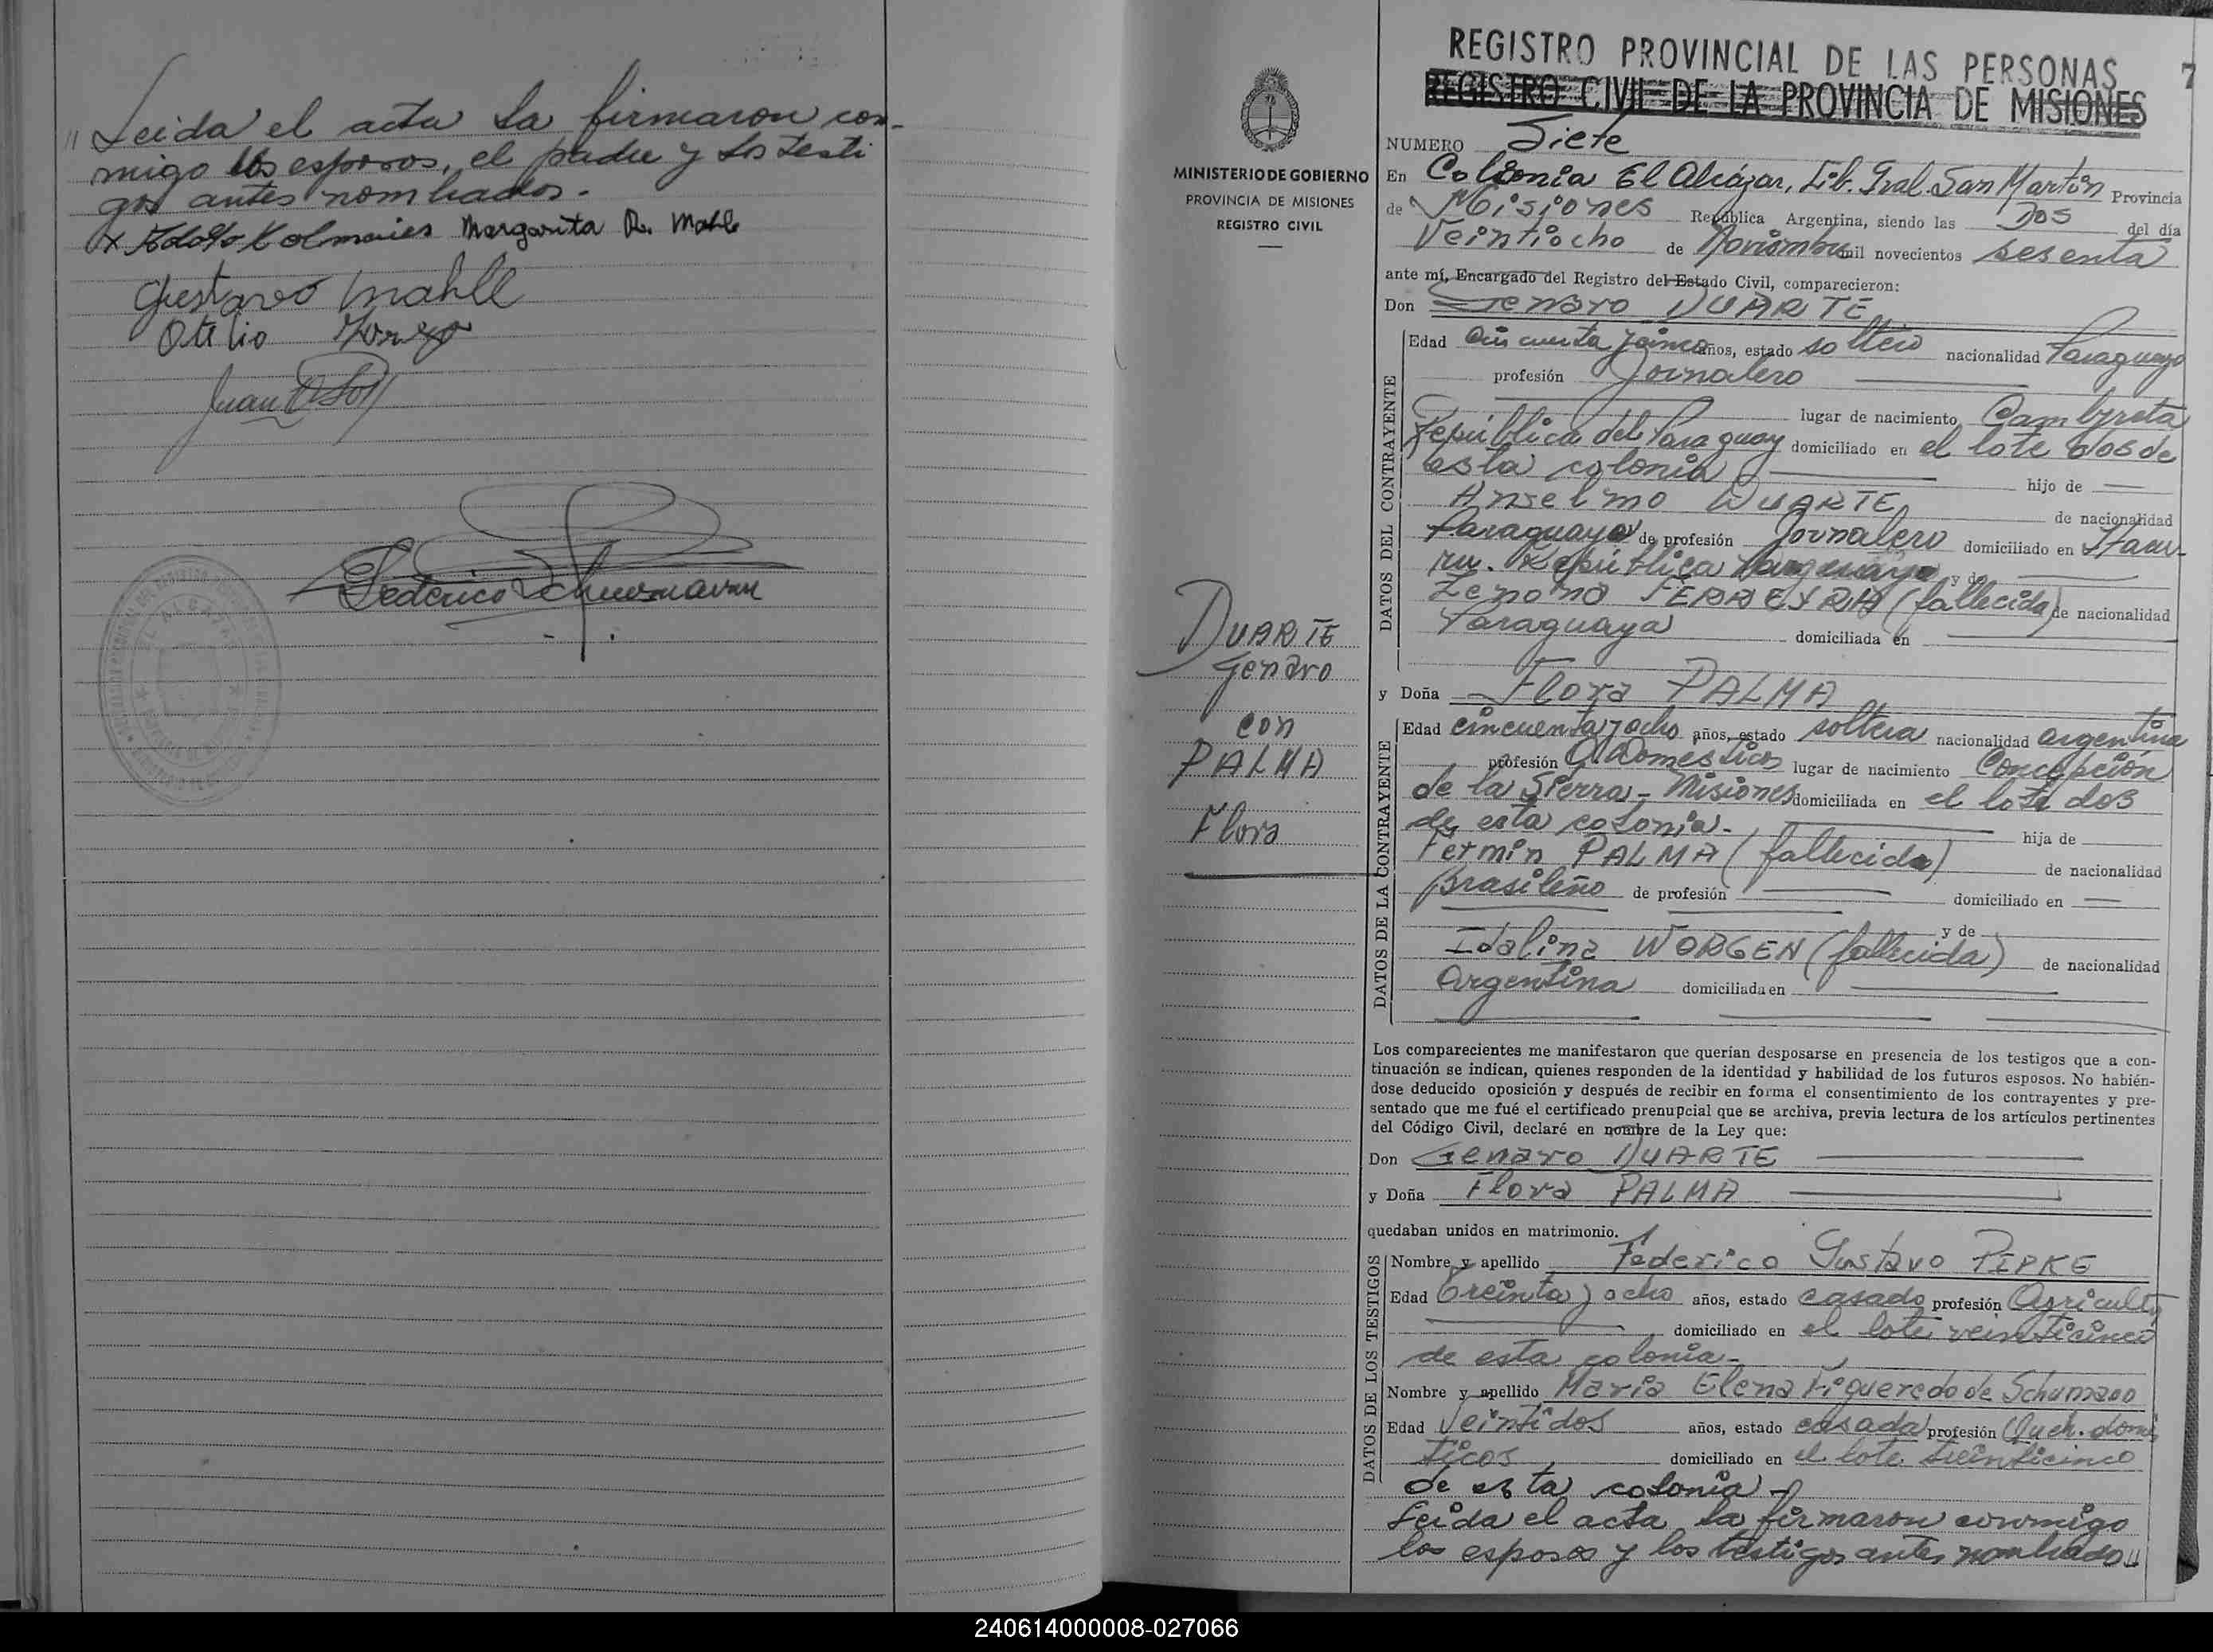 " Leida el acta la firmaron con-
migo los esposos, el padre y los testi
gos antes nombrados.-
Margarita R. Mahle
Gustavo Mahle
Otilio
Juan
Federico Schuermann
7
REGISTRO PROVINCIAL DE LAS PERSONAS
REGISTRO CIVIL DE LA PROVINCIA DE MISIONES
MINISTERIO DE GOBIERNO
PROVINCIA DE MISIONES
REGISTRO CIVIL
DUARTE
Genaro
con
PALMA
Flora
NUMERO Siete
En Colonia El Alcázar, Lib. Gral. San Martín Provincia
de Misiones República Argentina, siendo las Dos del día
Veintiocho de Noviembre mil novecientos sesenta
ante mí, Encargado del Registro del Estado Civil, comparecieron:
Don Genaro DUARTE
DATOS DEL CONTRAYENTE
Edad Cincuenta y cinco años, estado soltero nacionalidad Paraguayo
profesión Jornalero
lugar de nacimiento Cambyreta
República del Paraguay domiciliado en el lote dos de
esta colonia hijo de
Anselmo DUARTE de nacionalidad
Paraguayo de profesión Jornalero domiciliado en Itacu-
ru. República Paraguaya y de
Zenona FERREYRA (fallecida) de nacionalidad
Paraguaya domiciliada en
y Doña Flora PALMA
DATOS DE LA CONTRAYENTE
Edad cincuenta y ocho años, estado soltera nacionalidad argentina
profesión Q. Domésticos lugar de nacimiento Concepción
de la Sierra - Misiones domiciliada en el lote dos
de esta colonia.- hija de
Fermin PALMA (fallecido) de nacionalidad
Brasileño de profesión domiciliado en
y de
Idalina WORGEN (fallecida) de nacionalidad
Argentina domiciliada en
Los comparecientes me manifestaron que querían desposarse en presencia de los testigos que a con-
tinuación se indican, quienes responden de la identidad y habilidad de los futuros esposos. No habién-
dose deducido oposición y después de recibir en forma el consentimiento de los contrayentes y pre-
sentado que me fué el certificado prenupcial que se archiva, previa lectura de los artículos pertinentes
del Código Civil, declaré en nombre de la Ley que:
Don Genaro DUARTE
y Doña Flora PALMA
quedaban unidos en matrimonio.
DATOS DE LOS TESTIGOS
Nombre y apellido Federico Gustavo PIPKE
Edad Treinta y ocho años, estado casado profesión Agricultor
domiciliado en el lote veinticinco
de esta colonia-
Nombre y apellido Maria Elena Figueredo de Schumann
Edad Veintidos años, estado casada profesión Queh. domés
ticos domiciliado en el lote veinticinco
de esta colonia-
Leida el acta la firmaron conmigo
los esposos y los testigos antes nombrados "
240614000008-027066